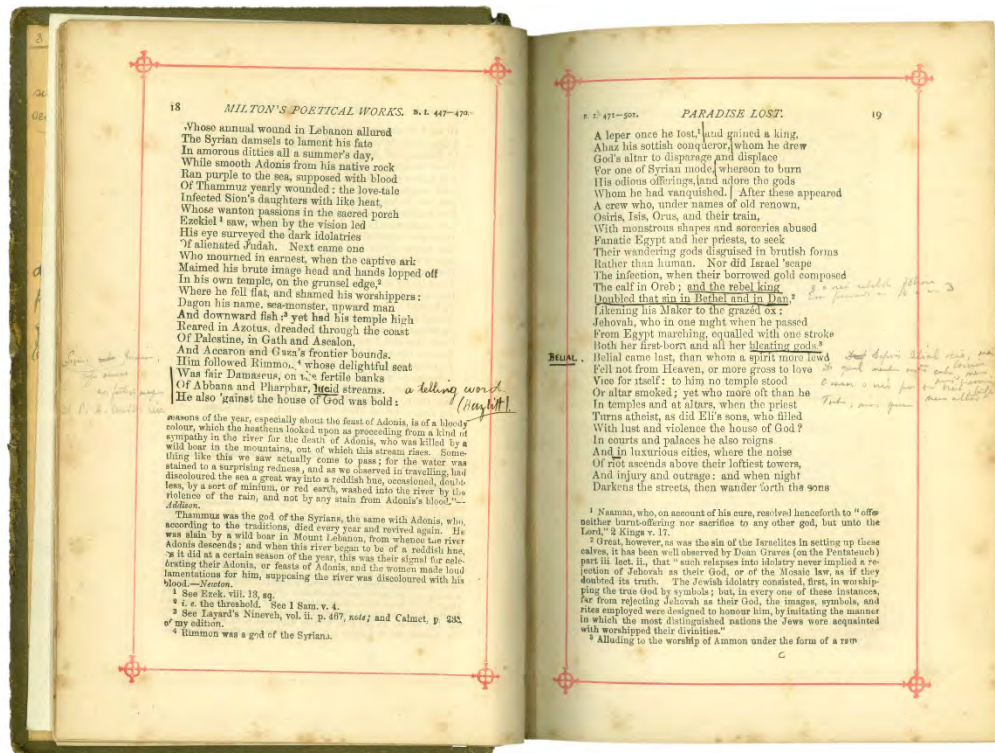 18 MILTON'S POETICAL WORKS. B. I. 447—470
Whose annual wound in Lebanon allured
The Syrian damsels to lament his fate
In amorous ditties all a summer's day,
While smooth Adonis from his native rock
Ran purple to the sea, supposed with blood
Of Thammuz yearly wounded: the love-tale
Infected Sion's daughters with like heat,
Whose wanton passions in the sacred porch
Ezekiel¹ saw, when by the vision led
His eye surveyed the dark idolatries
Of alienated Judah. Next came one
Who mourned in earnest, when the captive ark
Maimed his brute image head and hands lopped off
In his own temple, on the grunsel edge,²
Where he fell flat, and shamed his worshippers:
Dagon his name, sea-monster, upward man
And downward fish:³ yet had his temple high
Reared in Azotus, dreaded through the coast
Of Palestine, in Gath and Ascalon,
And Accaron and Gaza's frontier bounds.
Him followed Rimmon,⁴ whose delightful seat
Was fair Damascus, on the fertile banks
Of Abbana and Pharphar, lucid streams.
He also 'gainst the house of God was bold:
a telling word
(Hazlitt).
seasons of the year, especially about the feast of Adonis, is of a bloody
colour, which the heathens looked upon as proceeding from a kind of
sympathy in the river for the death of Adonis, who was killed by a
wild boar in the mountains, out of which this stream rises. Some-
thing like this we saw actually come to pass; for the water was
stained to a surprising redness, and as we observed in travelling, had
discoloured the sea a great way into a reddish hue, occasioned, doubt-
less, by a sort of minium, or red earth, washed into the river by the
violence of the rain, and not by any stain from Adonis's blood."—
Addison.
Thammuz was the god of the Syrians, the same with Adonis, who,
according to the traditions, died every year and revived again. He
was slain by a wild boar in Mount Lebanon, from whence the river
Adonis descends; and when this river began to be of a reddish hue,
as it did at a certain season of the year, this was their signal for cele-
brating their Adonis, or feasts of Adonis, and the women made loud
lamentations for him, supposing the river was discoloured with his
blood.—Newton.
¹ See Ezek. viii. 13, sq.
² i. e. the threshold. See 1 Sam. v. 4.
³ See Layard's Nineveh, vol. ii. p. 467, note; and Calmet, p. 283,
of my edition.
⁴ Rimmon was a god of the Syrians.
B. I. 471—502. PARADISE LOST. 19
A leper once he lost,¹ and gained a king,
Ahaz his sottish conqueror, whom he drew
God's altar to disparage and displace
For one of Syrian mode, whereon to burn
His odious offerings, and adore the gods
Whom he had vanquished. After these appeared
A crew who, under names of old renown,
Osiris, Isis, Orus, and their train,
With monstrous shapes and sorceries abused
Fanatic Egypt and her priests, to seek
Their wandering gods disguised in brutish forms
Rather than human. Nor did Israel 'scape
The infection, when their borrowed gold composed
The calf in Oreb; and the rebel king
Doubled that sin in Bethel and in Dan,²
Likening his Maker to the grazéd ox;
Jehovah, who in one night when he passed
From Egypt marching, equalled with one stroke
Both her first-born and all her bleating gods.³
BELIAL. Belial came last, than whom a spirit more lewd
Fell not from Heaven, or more gross to love
Vice for itself: to him no temple stood
Or altar smoked; yet who more oft than he
In temples and at altars, when the priest
Turns atheist, as did Eli's sons, who filled
With lust and violence the house of God?
In courts and palaces he also reigns
And in luxurious cities, where the noise
Of riot ascends above their loftiest towers,
And injury and outrage: and when night
Darkens the streets, then wander forth the sons
¹ Naaman, who, on account of his cure, resolved henceforth to "offer
neither burnt-offering nor sacrifice to any other god, but unto the
Lord," 2 Kings v. 17.
² Great, however, as was the sin of the Israelites in setting up these
calves, it has been well observed by Dean Graves (on the Pentateuch)
part iii. lect. ii., that "such relapses into idolatry never implied a re-
jection of Jehovah as their God, or of the Mosaic law, as if they
doubted its truth. The Jewish idolatry consisted, first, in worship-
ping the true God by symbols; but, in every one of these instances,
far from rejecting Jehovah as their God, the images, symbols, and
rites employed were designed to honour him, by imitating the manner
in which the most distinguished nations the Jews were acquainted
with worshipped their divinities."
³ Alluding to the worship of Ammon under the form of a ram
C